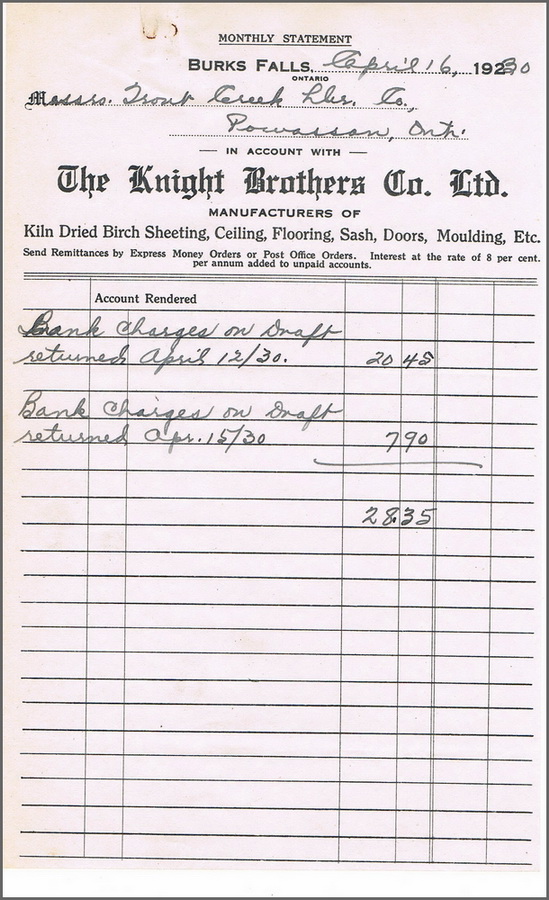 MONTHLY STATEMENT
BURKS FALLS, April 16, 1930
ONTARIO
Messrs. Trout Creek Lbr. Co.,
Powassan, Ont.
IN ACCOUNT WITH
The Knight Brothers Co. Ltd.
MANUFACTURERS OF
Kiln Dried Birch Sheeting, Ceiling, Flooring, Sash, Doors, Moulding, Etc.
Send Remittances by Express Money Orders or Post Office Orders. Interest at the rate of 8 per cent.
per annum added to unpaid accounts.
Account Rendered
Bank Charges on Draft
returned April 12/30. 20 45
Bank Charges on Draft
returned Apr. 15/30 7 90
28.35